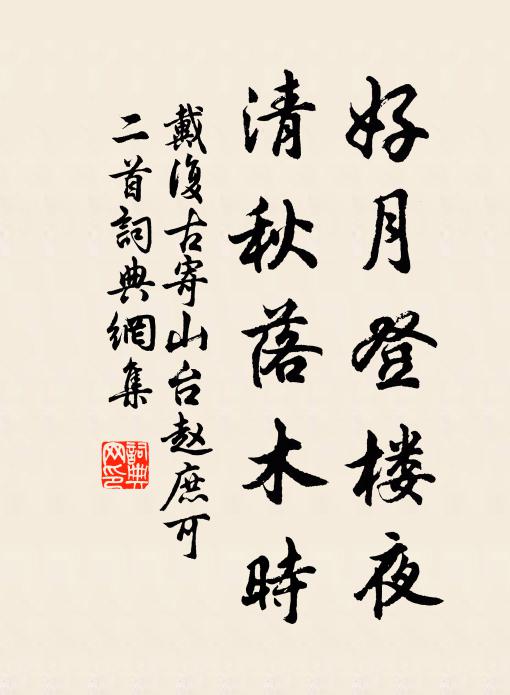 好月登楼夜
清秋落木時
戴復古寄山台赵庶可
二首詞典網集
詞典网印